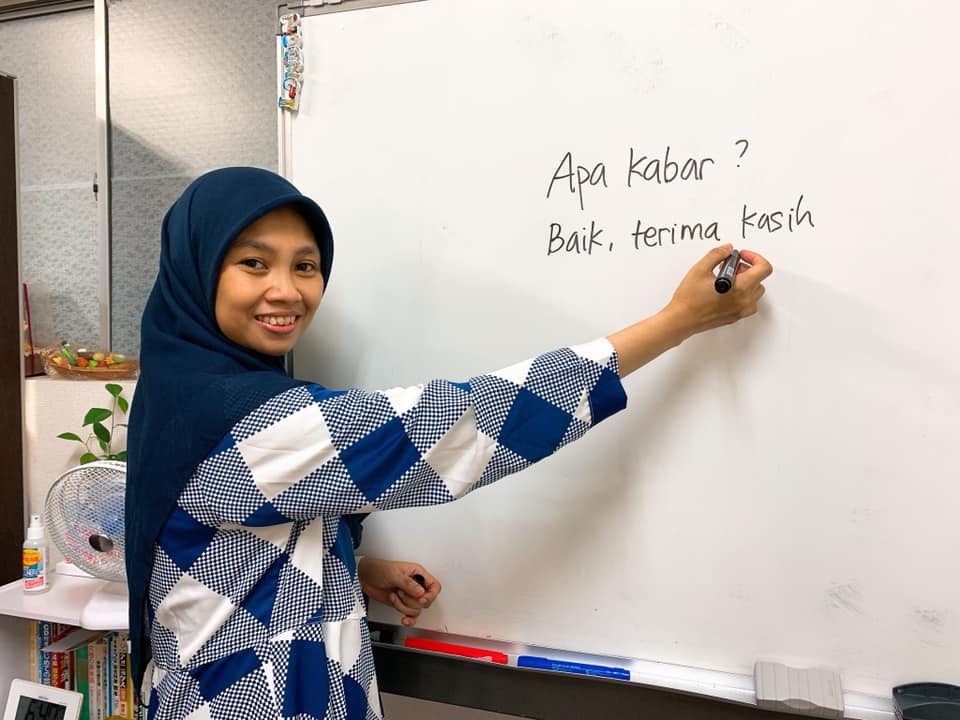 Apa kabar ?
Baik, terima kasih